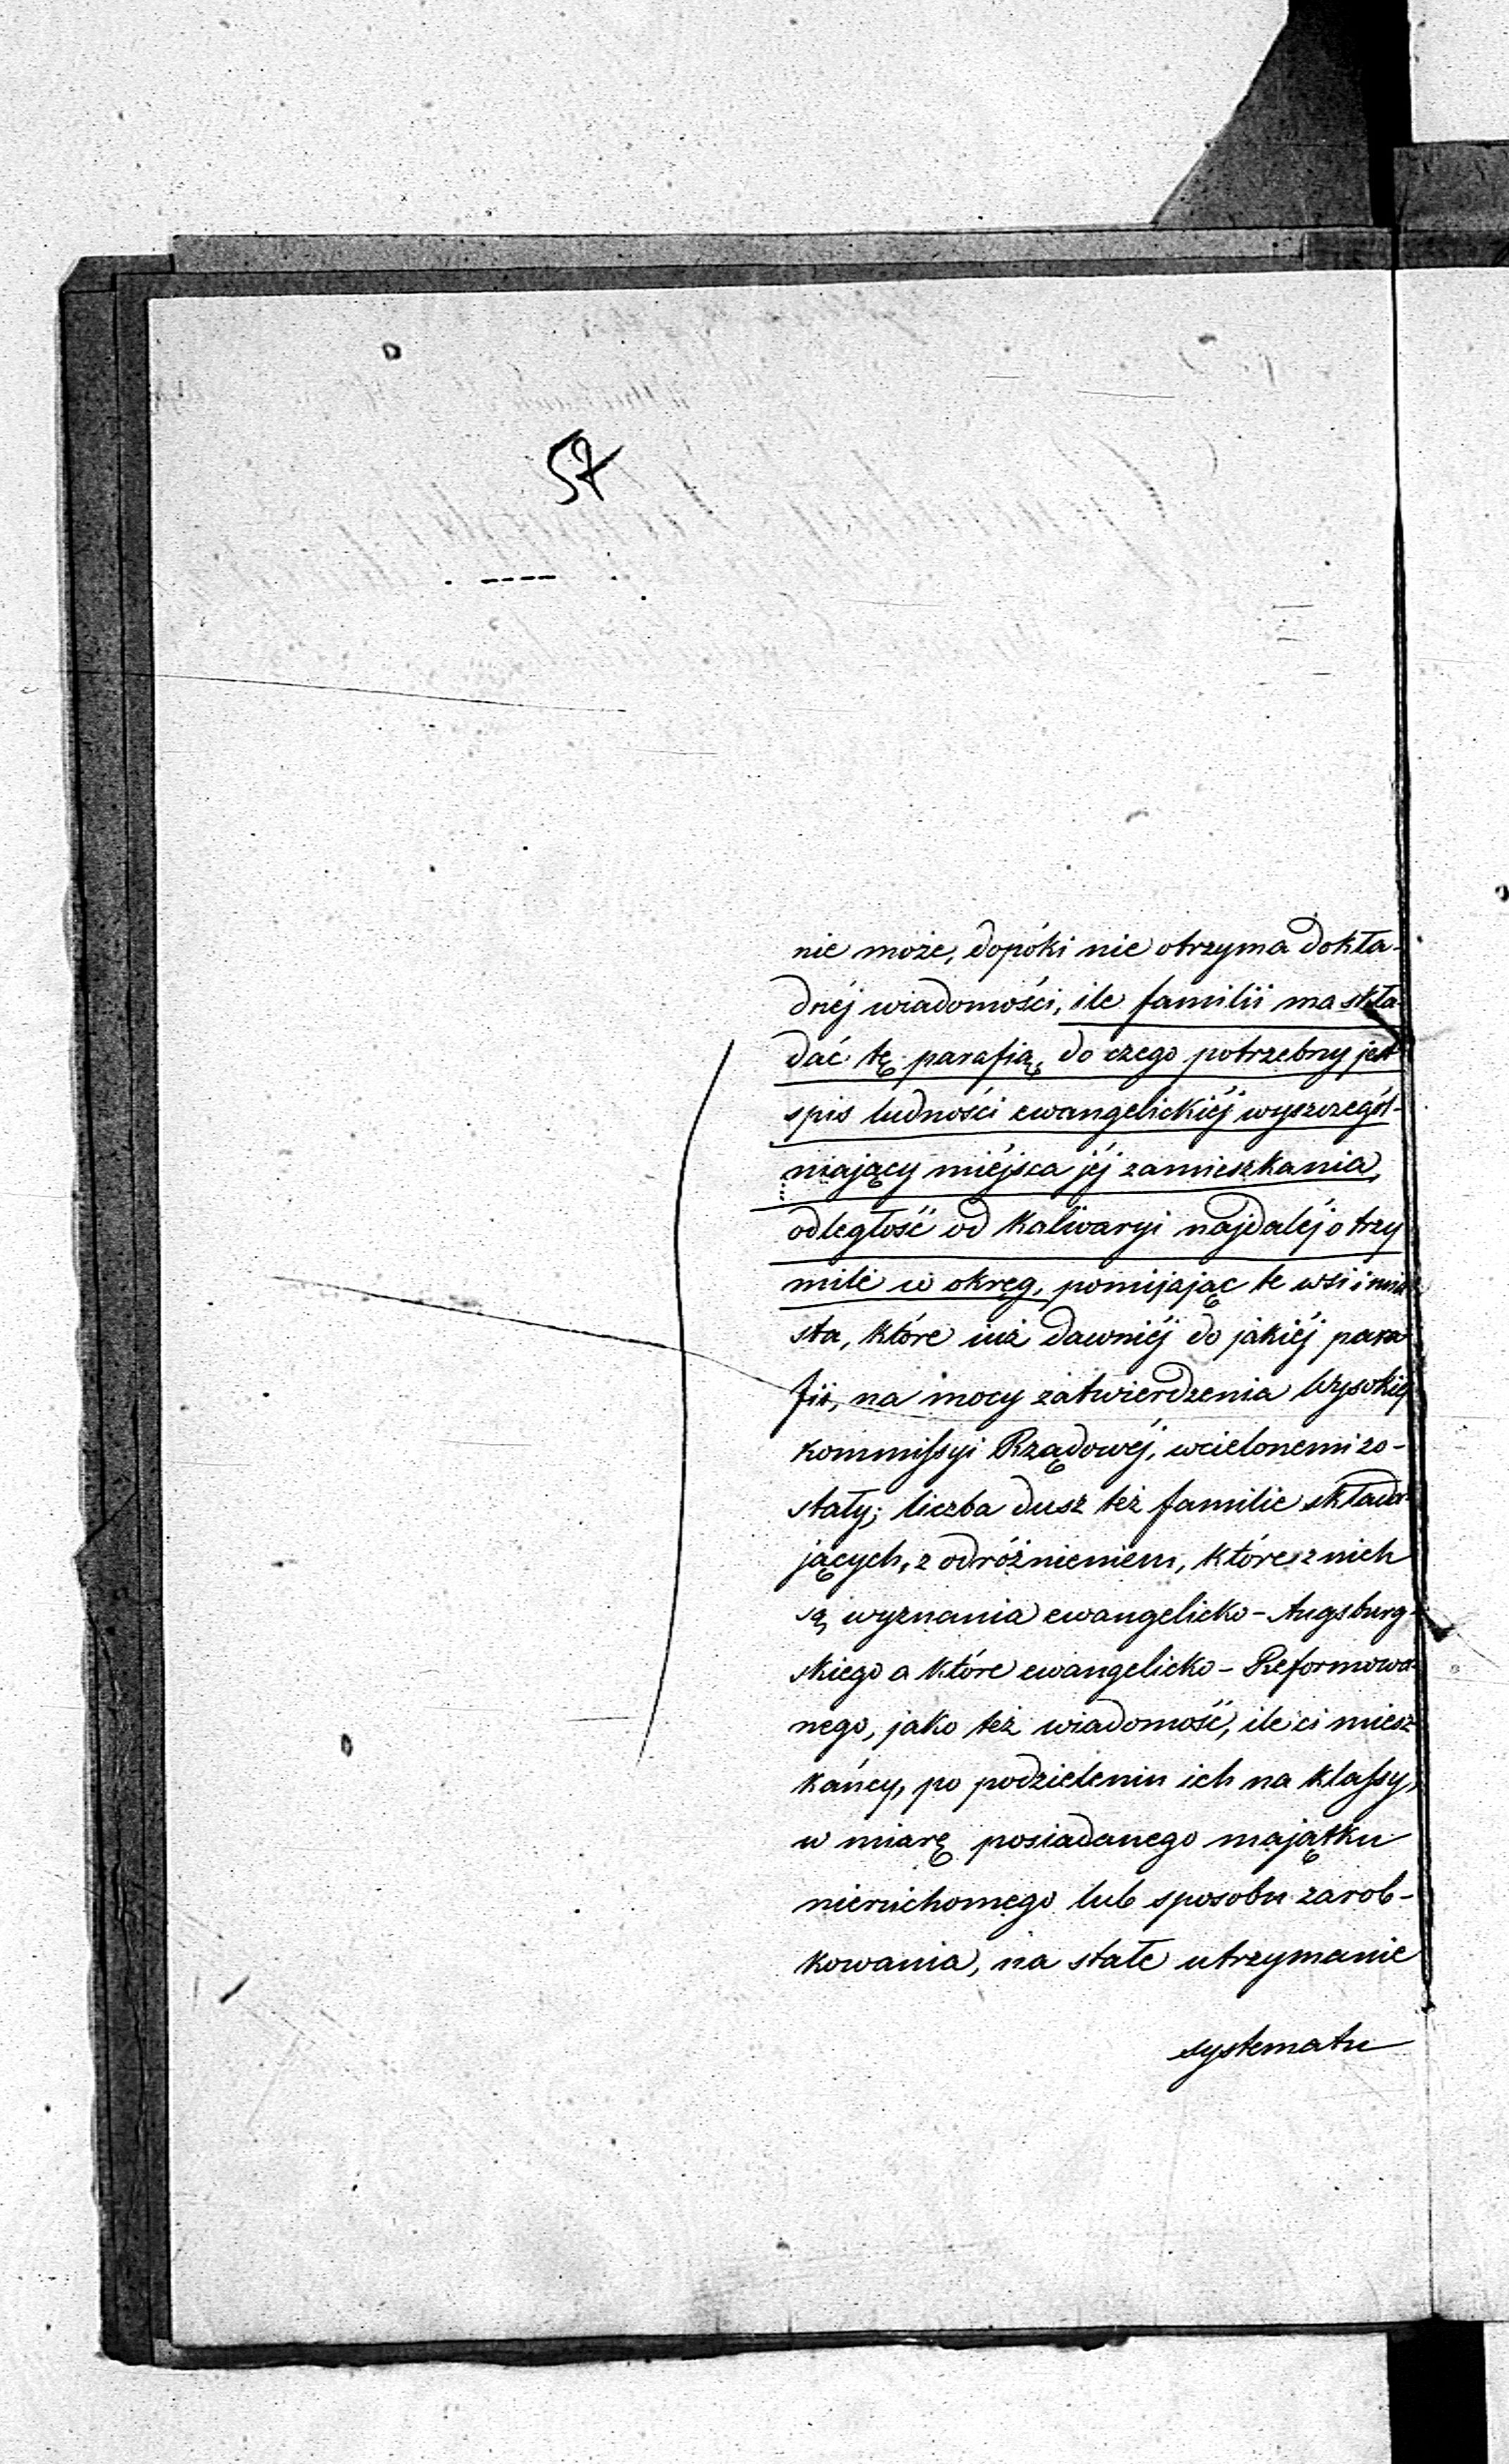 57
nie może, dopóki nie otrzyma dokła-
dnéj wiadomości, ile familii ma skła-
dać tę parafią, do czego potrzebny jest
spis ludności ewangelickiéj wyszczegól-
niający miéjsca jéj zamieszkania,
odległość od Kalwaryi najdaléj o trzy
mile w okręg, pomijając te wsi i mia-
sta, które już dawniéj do jakiéj para-
fii, na mocy zatwierdzenia Wysokiéj
Kommissyi Rządowéj, wcielonemi zo-
stały; liczba dusz też familie składa-
jących, z odróżnieniem, które z nich
są wyznania ewangelicko-Augsburg-
skiego a które ewangelicko-Reformowa-
nego, jako też wiadomość, ile ci miesz-
kańcy, po podzieleniu ich na klassy,
w miarę posiadanego majątku
nieruchomego lub sposobu zarob-
kowania, na stałe utrzymanie
systematu